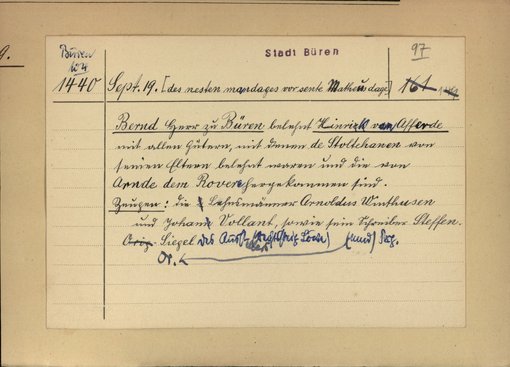 9.
Büren
Stadt Büren
97
1440 Sept. 19. [des nesten mandages vor sente Matheus dage] 161
Bernd Herr zu Büren belehnt Hinrick van Afferde
mit allen Gütern, mit denen de Stoltehanen von
seinen Eltern belehnt waren und die von
Arnde dem Rover hergekommen sind.
Zeugen: die Lehnsmänner Arnoldes Winthusen
und Johan Vollant, sowie sein Schreiber Steffen.
Orig. Siegel des Ausst. (und) Perg.
Or.